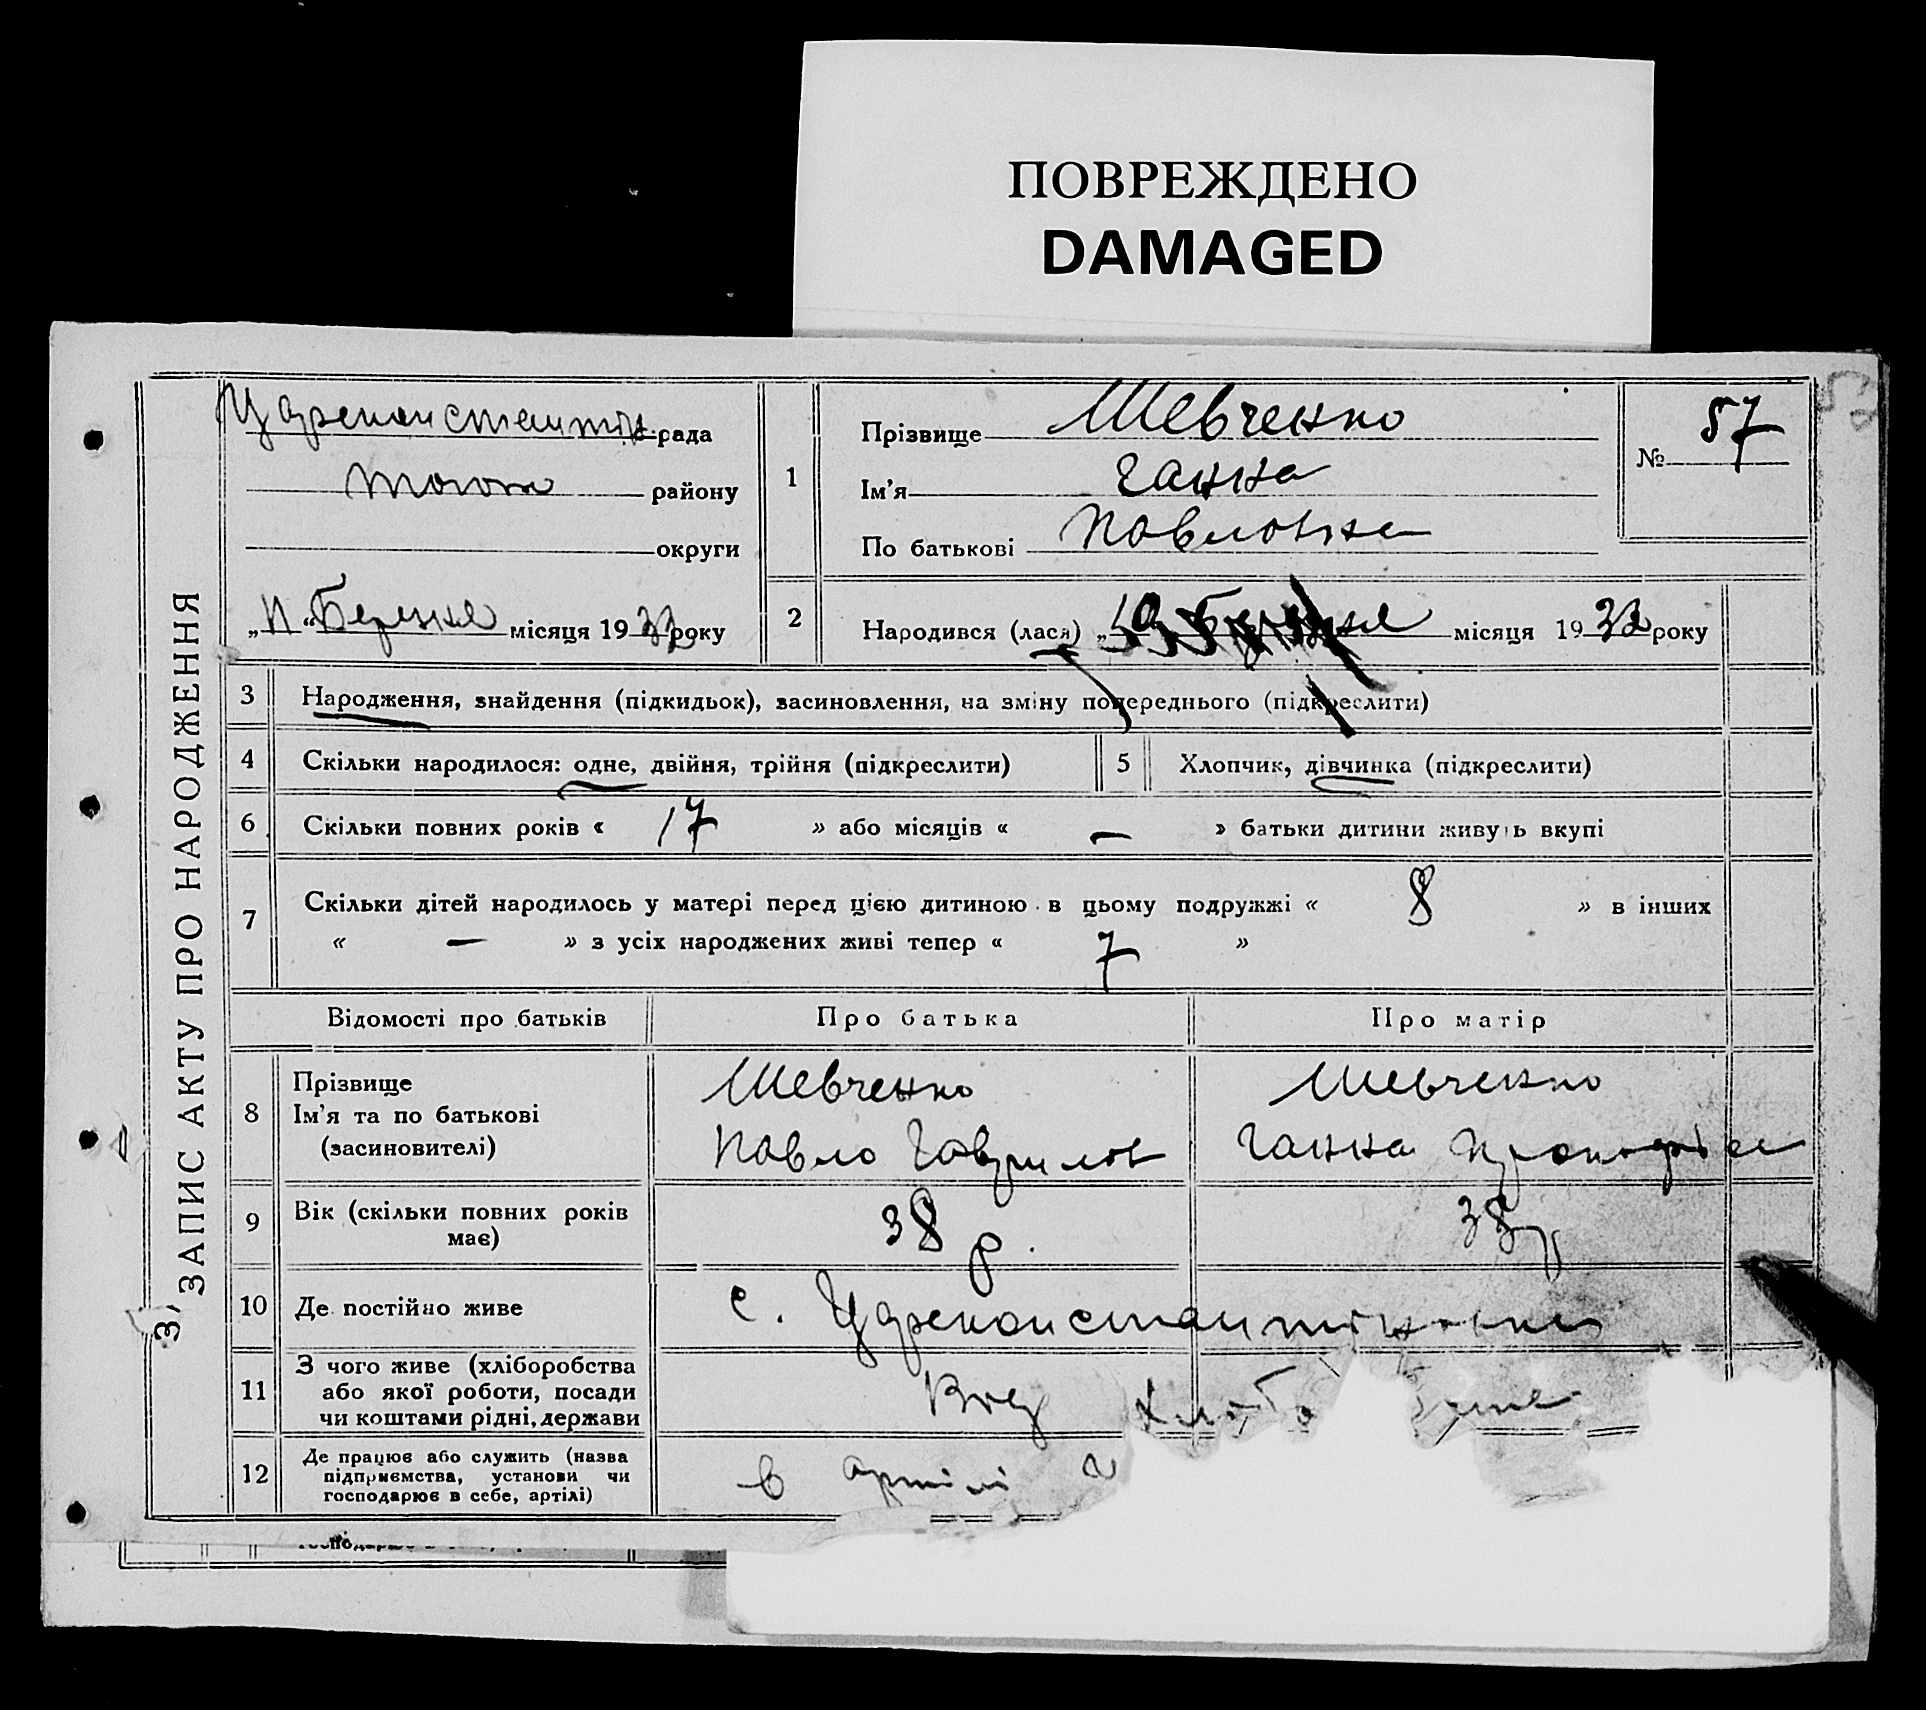 ПОВРЕЖДЕНО
DAMAGED
ЗАПИС АКТУ ПРО НАРОДЖЕННЯ
Цареконстантин. рада
району
округи
„ “ Березня місяця 1933 року
1
Прізвище Шевченко
Ім'я Ганна
По батькові Павловна
№ 57
2
Народився (лася) „ місяця 1933 року
3 Народження, знайдення (підкидьок), засиновлення, на зміну попереднього (підкреслити)
4 Скільки народилося: одне, двійня, трійня (підкреслити) 5 Хлопчик, дівчинка (підкреслити)
6 Скільки повних років « 17 » або місяців « — » батьки дитини живуть вкупі
7 Скільки дітей народилось у матері перед цією дитиною в цьому подружжі « 8 » в інших
« — » з усіх народжених живі тепер « 7 »
Відомості про батьків Про батька Про матір
8 Прізвище
Ім'я та по батькові
(засиновителі)
Шевченко
Павло Гаврилов
Шевченко
Ганна
9 Вік (скільки повних років
має)
38 р. 38 р
10 Де постійно живе с. Цареконстантиновка
11 З чого живе (хліборобства
або якої роботи, посади
чи коштами рідні, держави
Від
12 Де працює або служить (назва
підприємства, установи чи
господарює в себе, артілі)
в артілі